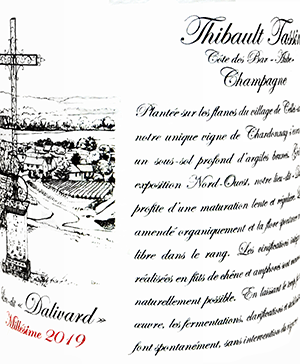 Thibault
Côte des Bar - Aube
Champagne
Plantée sur les flancs du village de
notre unique vigne de Chardonnay
un sous-sol profond d'argiles
exposition Nord-Ouest, notre lieu-dit
profite d'une maturation lente et
amendé organiquement et la flore
libre dans le rang. Les vinifications
réalisées en fûts de chêne et amphores sont
naturellement possible. En laissant le
œuvre, les fermentations, clarifications et
font spontanément, sans intervention du
"Dalivard"
Millésime 2019